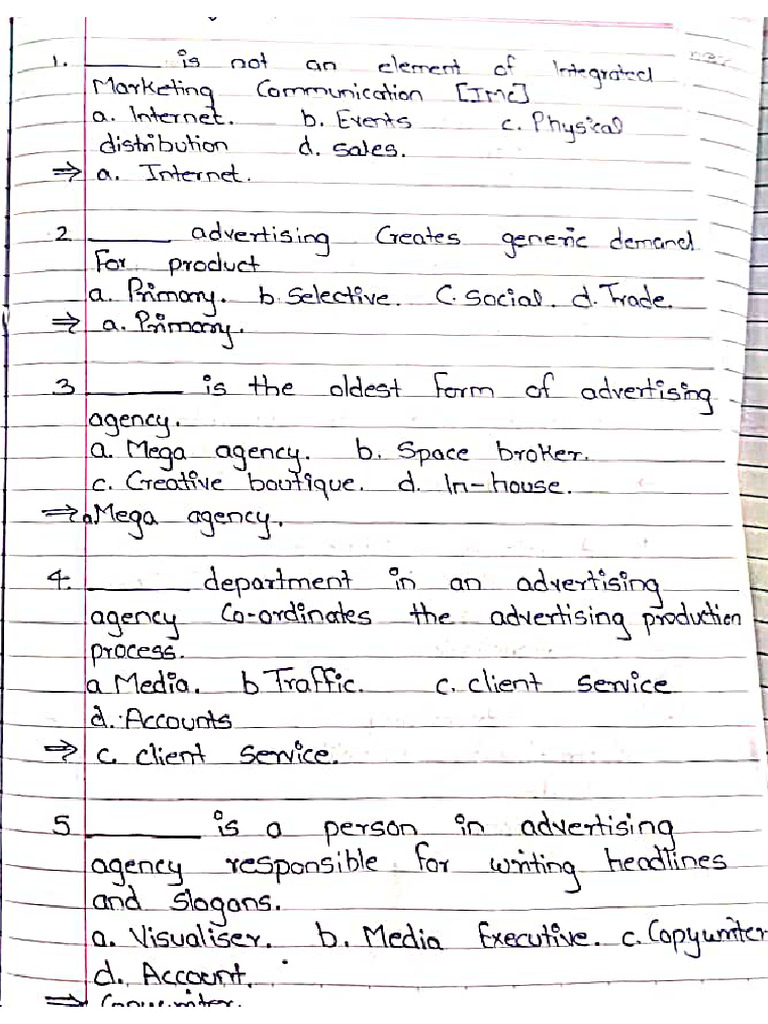 1. ______ is not an element of Integrated
Marketing Communication [IMC]
a. Internet. b. Events c. Physical
distribution d. sales.
⇒ a. Internet.
2 ______ advertising Creates generic demand
For product
a. Primary. b. Selective. C. Social. d. Trade.
⇒ a. Primary.
3 ______ is the oldest form of advertising
agency.
a. Mega agency. b. Space broker.
c. Creative boutique. d. In-house.
⇒ a Mega agency.
4. ______ department in an advertising
agency Co-ordinates the advertising production
process.
a Media. b Traffic. c. client service
d. Accounts
⇒ c. client service.
5 ______ is a person in advertising
agency responsible for writing headlines
and slogans.
a. Visualiser. b. Media Executive. c. Copywriter
d. Account.
⇒ Copywriter.